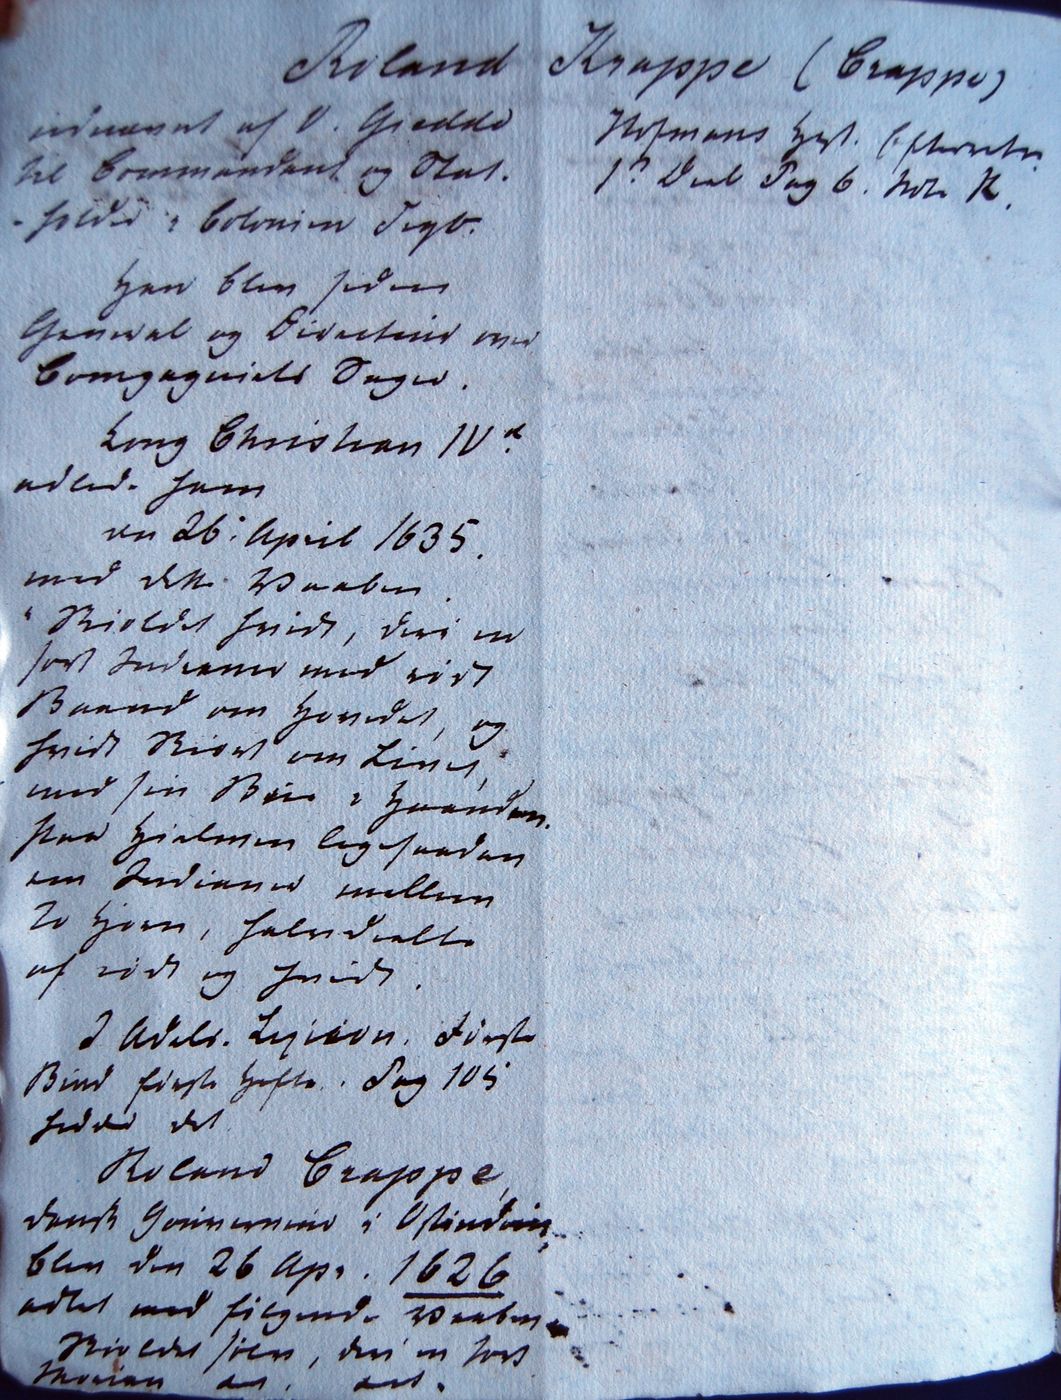 Roland Krappe (Crappe)
udnævnt af O. Giedde
til Commandant og Stat-
-holder i Colonien Trqb.
Hofmans hist. Efterretn.
1ᵉ Deel Pag 6. Note K.
Han blev siden
General og Directeur over
Compagniets Sager.
Kong Christian IVᵈ
adlede ham
en 26. April 1635.
med dette Vaaben.
"Skioldet hvidt, deri en
sort Indianer med rødt
Baand om Hovedet, og
hvidt Skiørt om Livet,
med sin Bue i Haanden.
Paa Hielmen ligesaadan
en Indianer mellem
to Horn, halvdeelte
af rødt og hvidt.
I Adels. Lexicon. Første
Bind første Hefte. Pag 105
hedder det
Roland Crappe,
dansk Gouverneur i Ostindien,
blev den 26 Apr. 1626
adlet med følgende Vaaben
Skioldet sølv, deri en sort
Morian &c. &c.